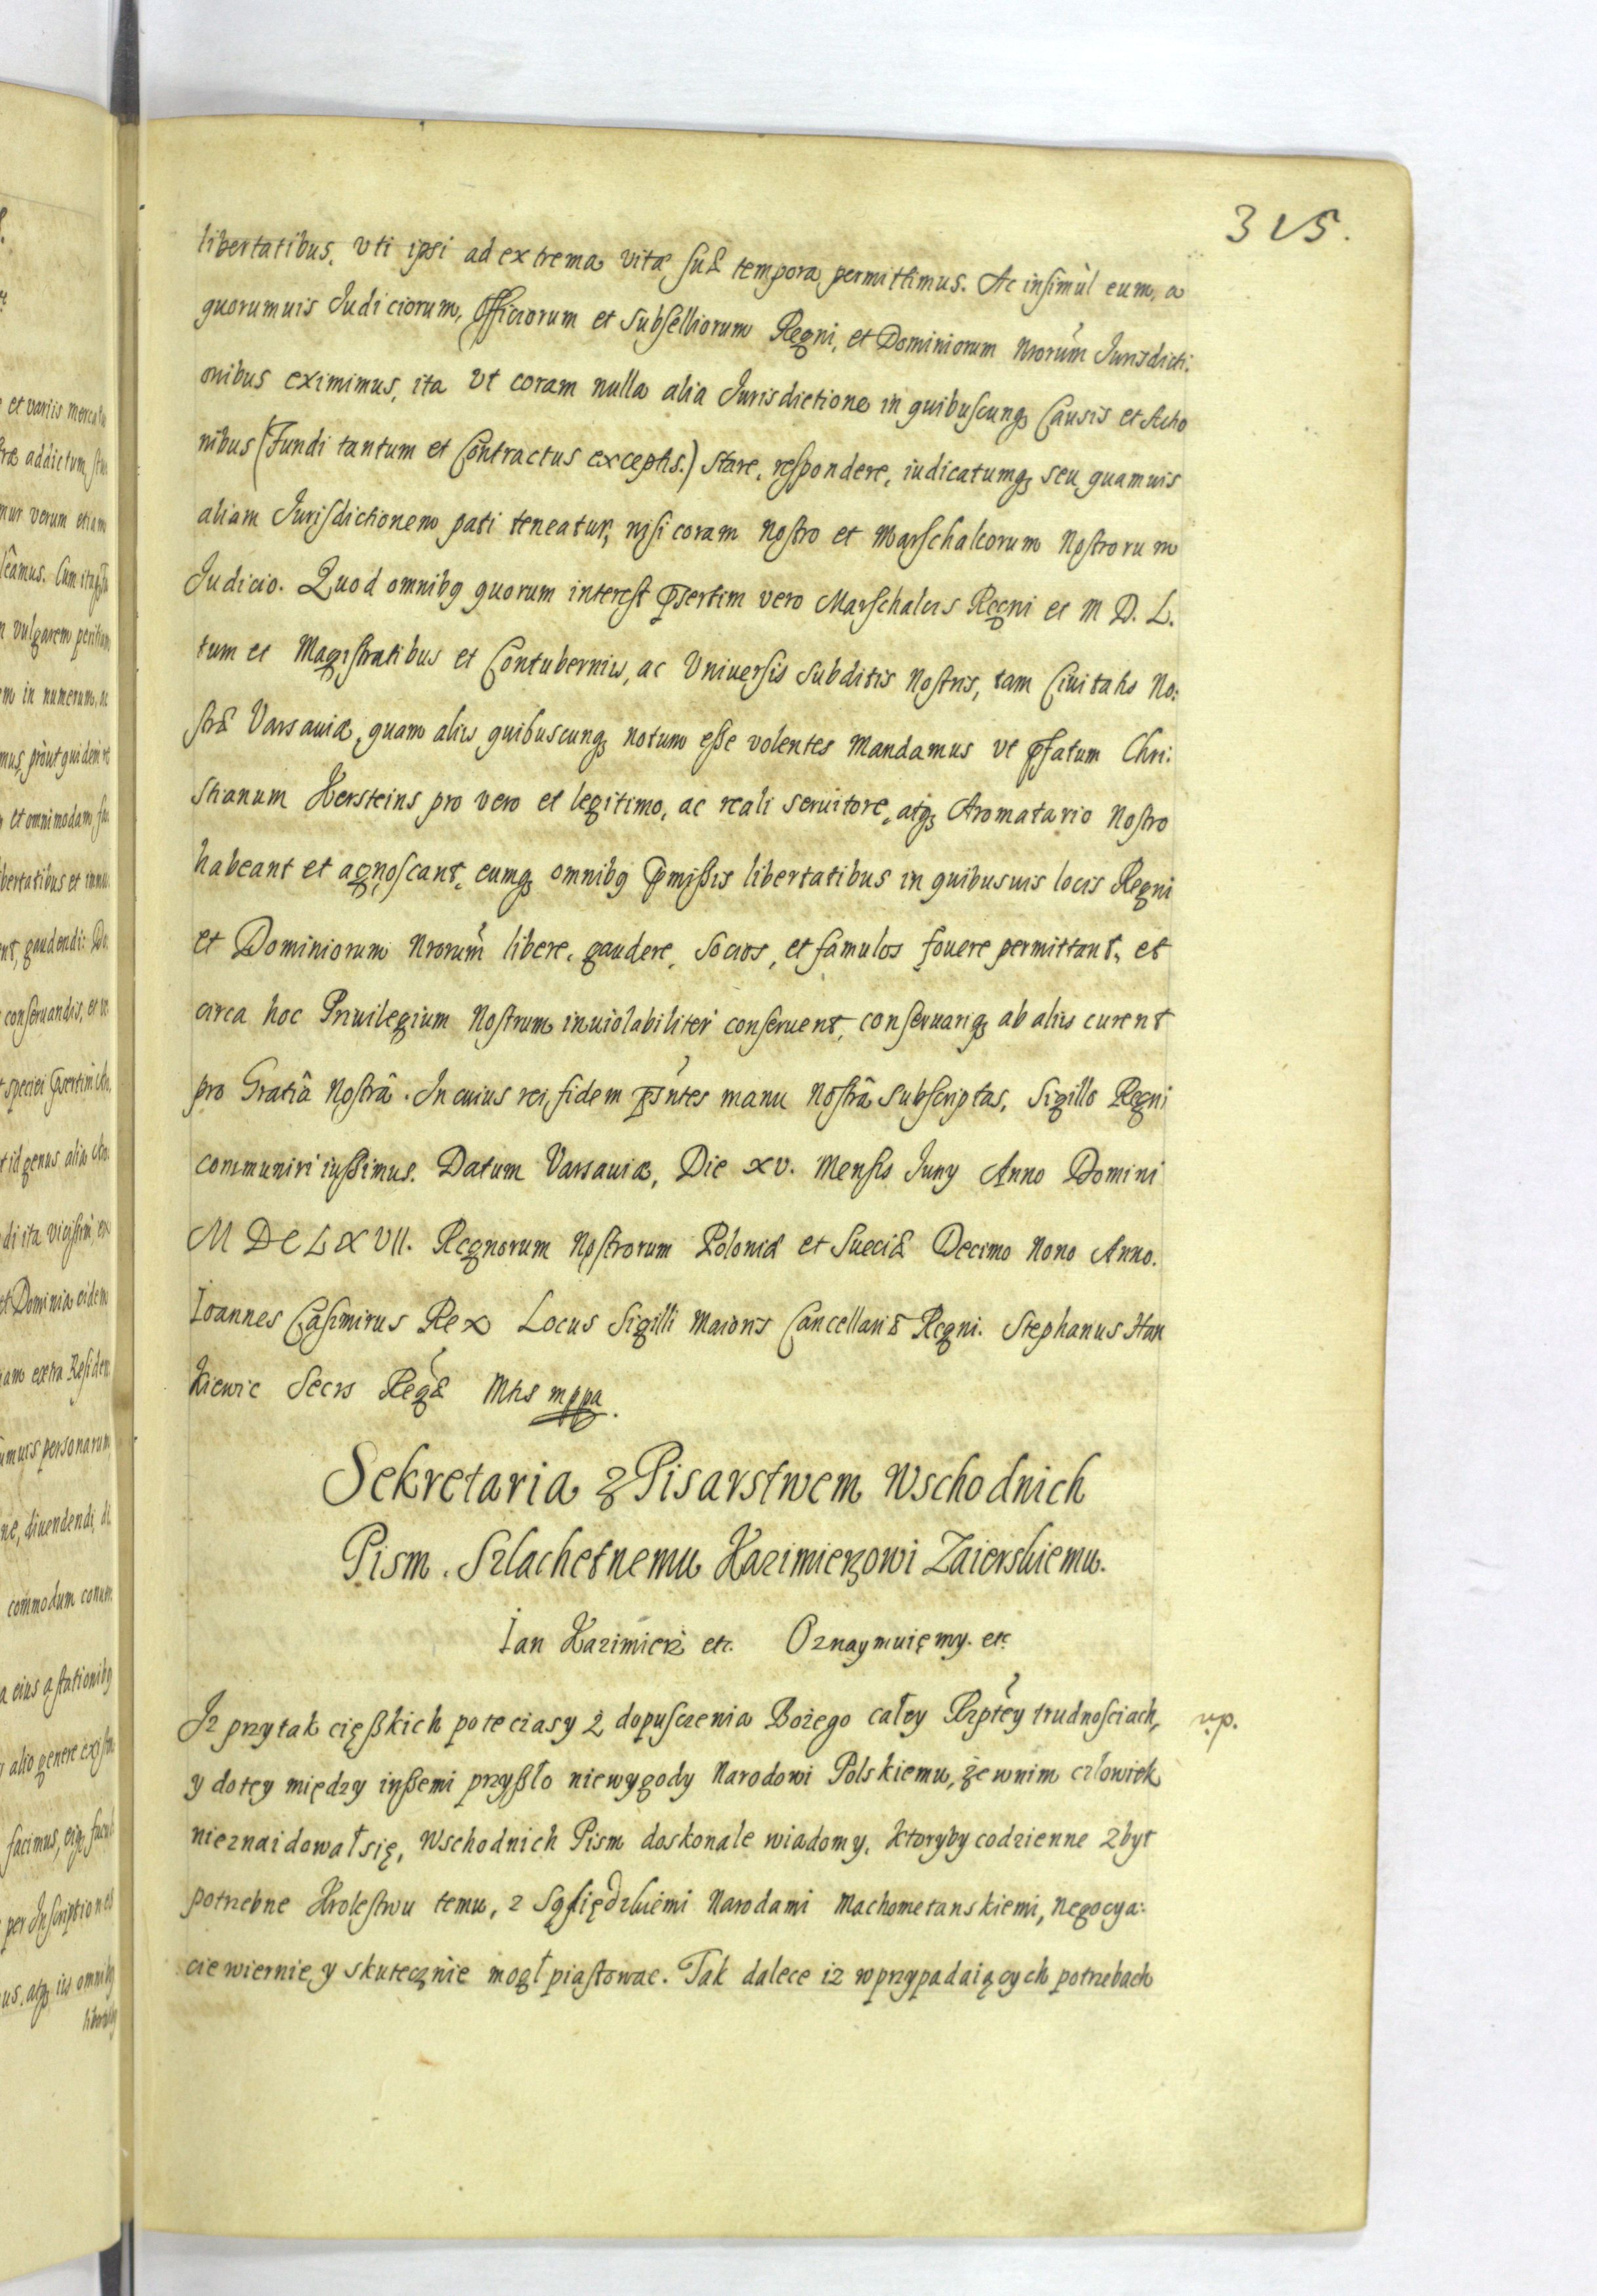 315.
libertatibus, vti ipsi ad extrema vitæ suæ tempora permittimus. Ac insimùl eum, a
quorumuis Judiciorum, Officiorum et Subselliorum Regni, et Dominiorum Nrorum̃ Jurisdicti.
onibus eximimus, ita vt coram nulla alia Jurisdictione in quibuscunq; Causis et Actio
nibus (Fundi tantum et Contractus exceptis.) stare, respondere, iudicatumq; seu quamuis
aliam Jurisdictionem pati teneatur, nisi coram Nostro et Marschalcorum Nostrorum
Judicio. Quod omnibq quorum interest p̄sertim vero Marschalcis Regni et M D. L.
tum et Magistratibus et Contubernijs, ac Vniuersis subditis Nostris, tam Ciuitatis No:
stræ Varsauiæ, quam alijs quibuscunq; notum esse volentes Mandamus vt p̄fatum Chri:
stianum Hersteins pro vero et legitimo, ac reali seruitore, atq; Aromatario Nostro
habeant et agnoscant, eumq; omnibq p̄missis libertatibus in quibusuis locis Regni
et Dominiorum Nrorum̃ libere, gaudere, socios, et famulos fouere permittant, et
circa hoc Priuilegium Nostrum inuiolabiliter conseruent, conseruariq; ab alijs curent
pro Gratiâ Nostrâ. In cuius rei, fidem p̄sñtes manu Nostrâ subscriptas, Sigillo Regni
communiri iussimus. Datum Varsauiæ, Die xv. Mensis Juny Anno Domini
M DC LXVII. Regnorum Nostrorum Poloniæ et Sueciæ Decimo Nono Anno.
Ioannes Casimirus Rex Locus Sigilli Maioris Cancellariæ Regni. Stephanus Han
kiewic Secrs Regæ Mtis mppa.
Sekretaria z Pisarstwem Wschodnich
Pism. Szlachetnemu Kazimierzowi Zaierskiemu.
Ian Kazimierz etc. Oznaymuięmy. etc
Iz przytak cięßkich poteciasy z dopusczenia Bożego całey Rzptey trudnosciach,
y dotey między inßemi przyßło niewygody Narodowi Polskiemu, że wnim człowiek
nieznaidował się, Wschodnich Pism doskonale wiadomy, ktoryby codzienne zbyt
potrzebne Krolestwu temu, z Sąsiędzkiemi Narodami Machometanskiemi, negocya:
cie wiernie y skutecznie mogł piastowac. Tak dalece iz wprzypadaiących potrzebach